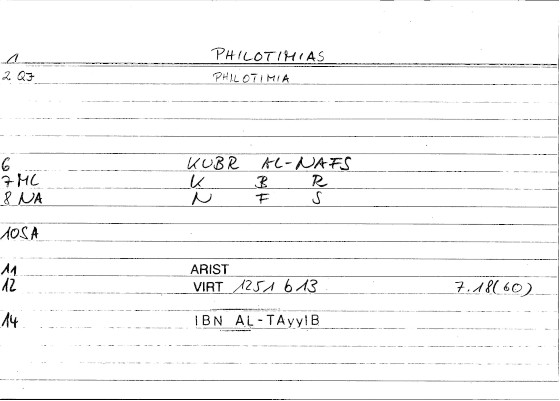 1 PHILOTIMIAS
2 QJ PHILOTIMIA
6 KUBR AL-NAFS
7 ML K B R
8 NA N F S
10SA
11 ARIST
12 VIRT 1251 b 13 7.18(60)
14 IBN AL-TAyyIB